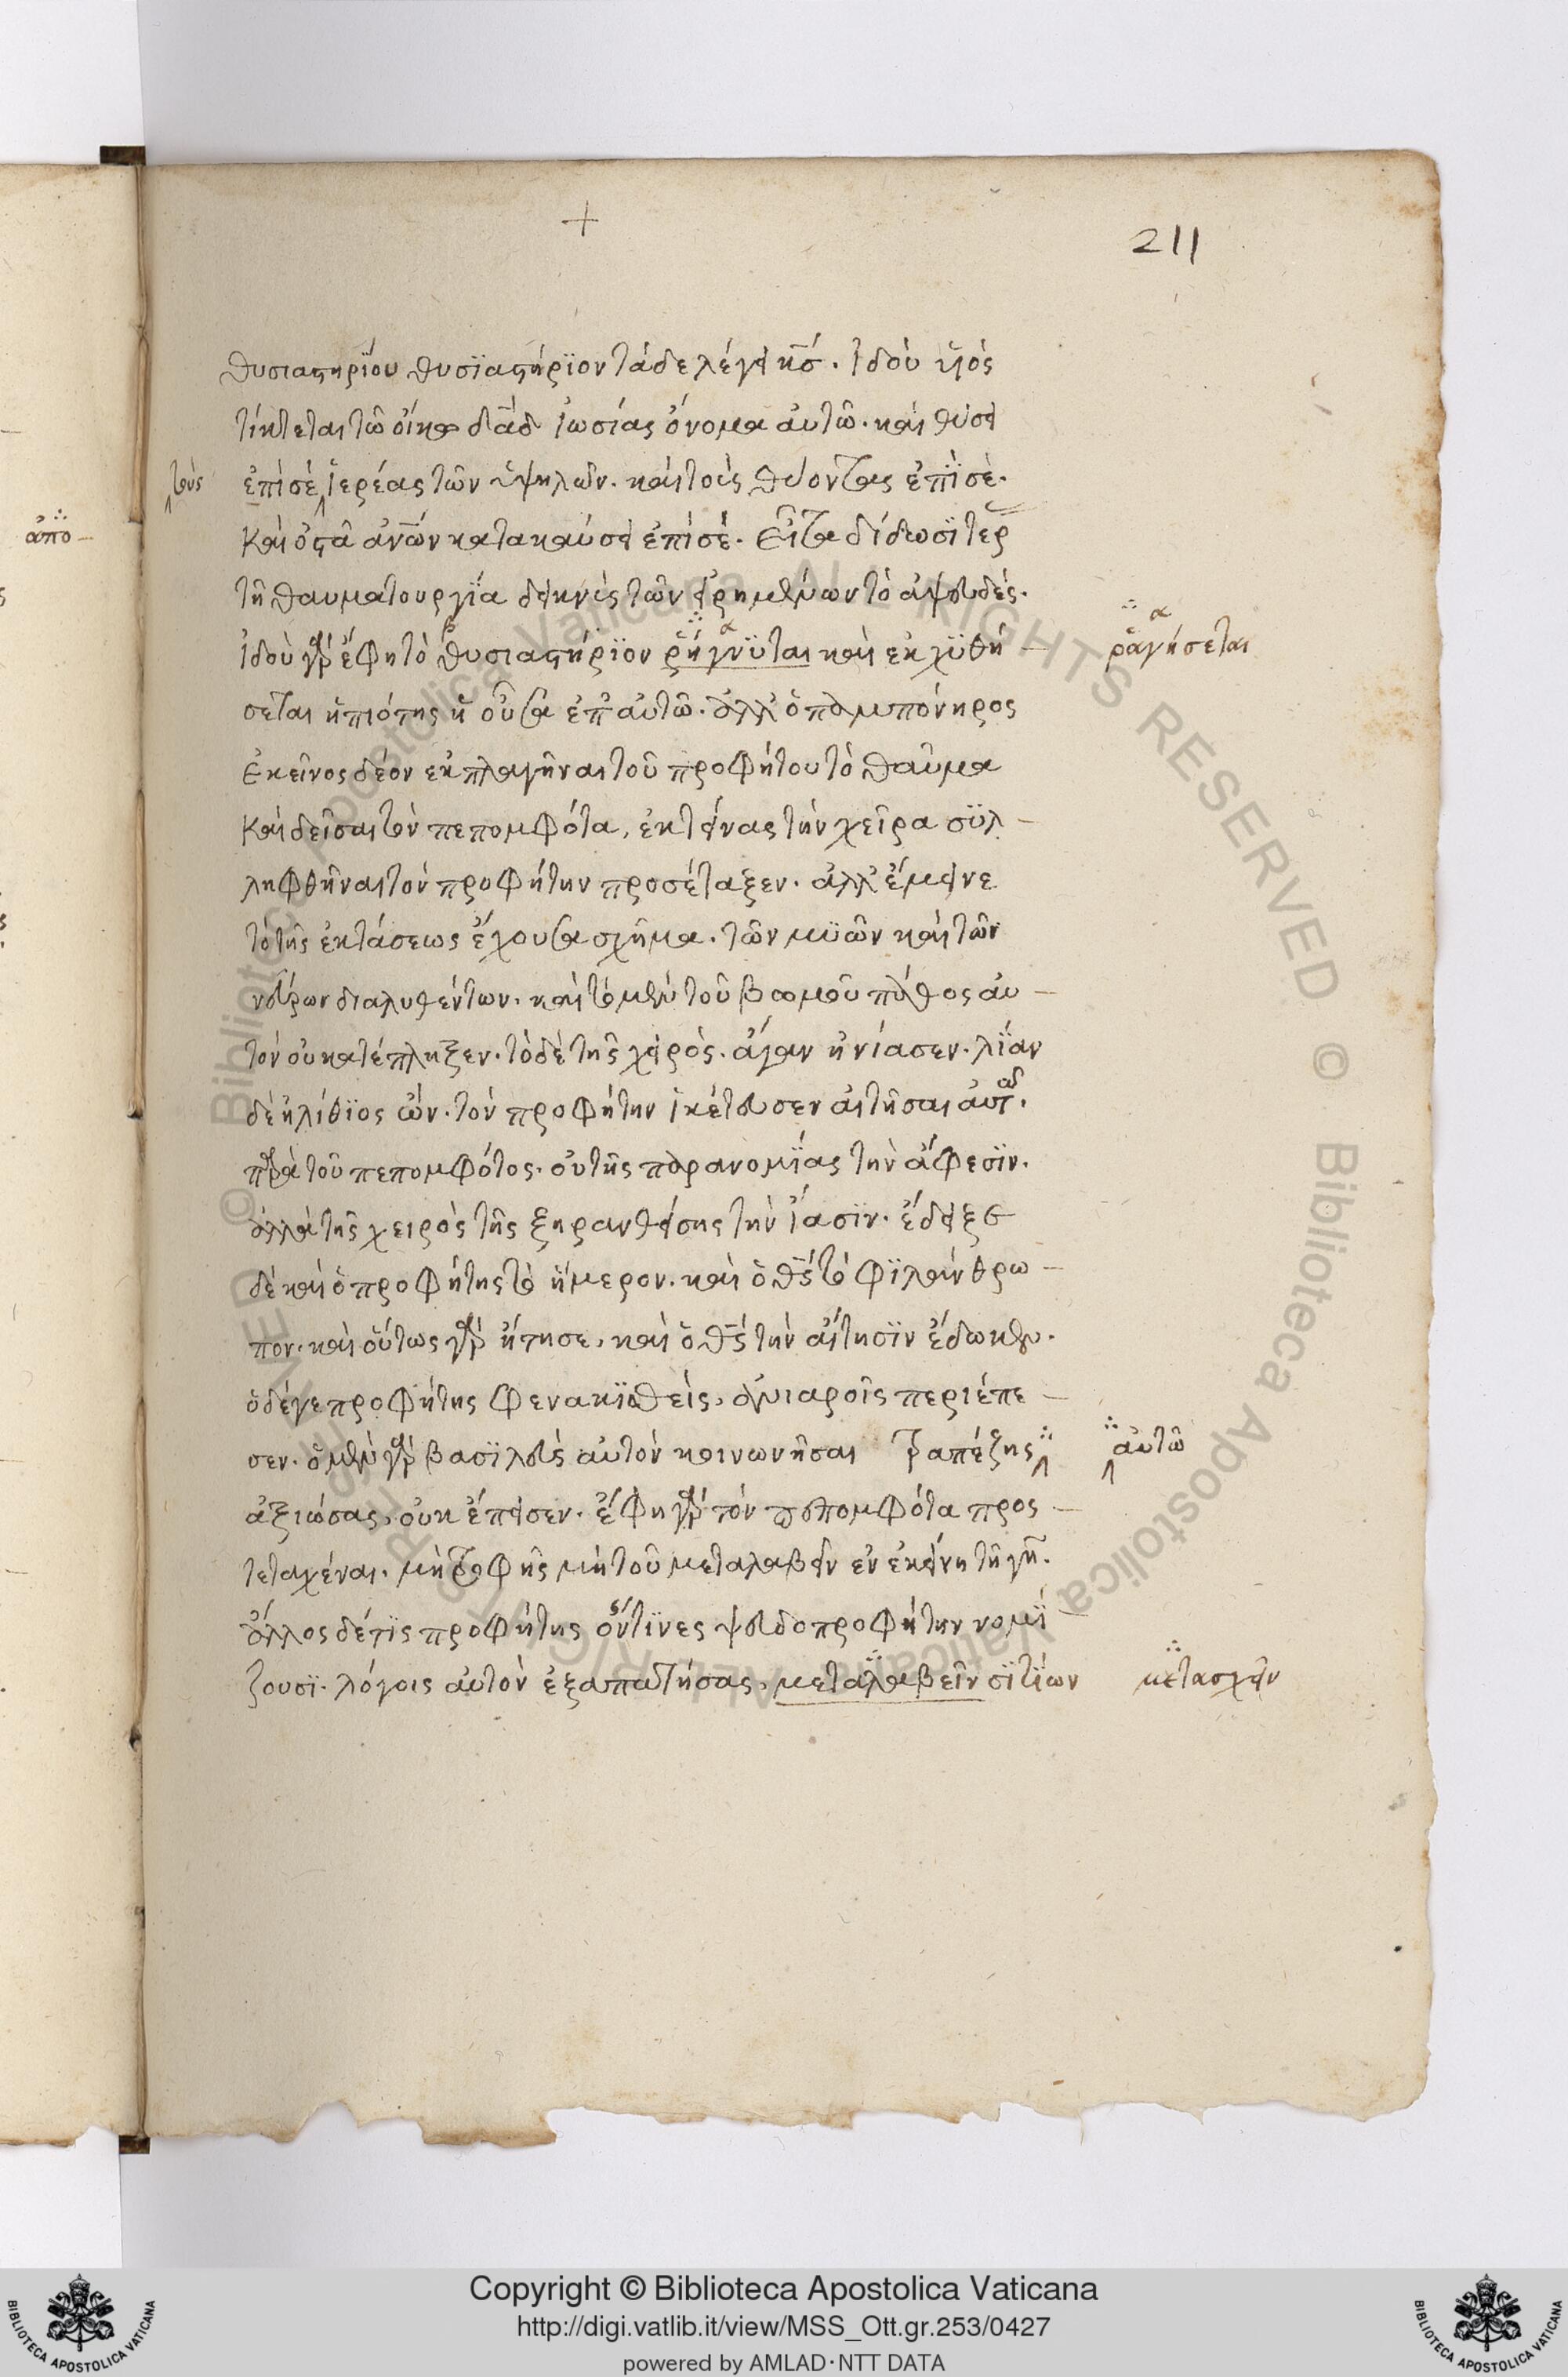 +
211
θυσιαστηρίου θυσϊαστήρϊον τάδε λέγει κ̅σ̅. ἰδοὺ υἱὸς
τίκτεται τῶ οἴκω δα̅δ ἰωσίας ὄνομα αὐτῶ. καὶ θύσει
τοὺς
ἐπὶ σὲ ἱερέας τῶν ὑψηλῶν. καὶ τοὺς θύοντας ἐπῒ σὲ.
ἀπο-
καὶ ὀστᾶ α̅ν̅ω̅ν κατακαύσει ἐπὶ σέ. εἶτα δίδωσϊ τερ
τῆ θαυματουργΐα δεικνὺς τῶν εἰρημένων τὸ ἀψευδές.
ἰδοὺ γὰρ ἔφη τὸ θυσιαστήρϊον ῥήγνϋται καὶ ἐκχϋθή
ῥαγήσεται
σεται ἡ πιότης ἡ οὖσα ἐπ' αὐτῶ. ἀλλ' ὁ παμπόνηρος
ἐκεῖνος δέον ἐκπλαγῆναι τοῦ προφήτου τὸ θαῦμα
καὶ δεῖσαι τὸν πεπομφότα, ἐκτείνας τὴν χεῖρα σϋλ-
ληφθῆναι τὸν προφήτην προσέταξεν. ἀλλ' ἔμεινε
τὸ τῆς ἐκτάσεως ἔχουσα σχῆμα. τῶν μϋῶν καὶ τῶν
νεύρων διαλυθέντων. καὶ τὸ μὲν τοῦ βωμοῦ πάθος αὐ-
τὸν οὐ κατέπληξεν. τὸ δὲ τῆς χειρὸς. ἄγαν ἠνίασεν. λΐαν
δὲ ἠλίθϊος ὤν. τὸν προφήτην ἱκέτευσεν αἰτῆσαι αὐτ.
παρὰ τοῦ πεπομφότος. οὐ τῆς παρανομΐας τὴν ἄφεσϊν.
ἀλλὰ τῆς χειρὸς τῆς ξηρανθείσης τὴν ἴασϊν. ἔδειξε
δὲ καὶ ὁ προφήτης τὸ ἥμερον. καὶ ὁ θ̅ς̅ τὸ φϊλάνθρω-
πον. καὶ οὕτως γὰρ ᾔτησε, καὶ ὁ θ̅ς̅ τὴν αἴτησϊν ἔδωκεν.
ὁ δέ γε προφήτης φενακϊσθεὶς, ἀνιαροῖς περιέπε-
σεν. ὁ μὲν γὰρ βασϊλεὺς αὐτὸν κοινωνῆσαι τραπέζης
αὐτῶ
ἀξιώσας, οὐκ ἔπεισεν. ἔφη γὰρ τὸν πεπομφότα προς-
τεταχέναι. μὴ τροφῆς μὴ τοῦ μεταλαβεῖν ἐν ἐκείνη τῆ γῆ.
ἄλλος δέ τϊς προφήτης ὅντϊνες ψευδοπροφήτην νομΐ-
ζουσϊ. λόγοις αὐτὸν ἐξαπατήσας, μεταλαβεῖν σϊτΐων
μετασχεῖν
© Biblioteca Apostolica Vaticana ALL RIGHTS RESERVED © Biblioteca Apostolica Vaticana ALL RIGHTS RESERVED
Copyright © Biblioteca Apostolica Vaticana
http://digi.vatlib.it/view/MSS_Ott.gr.253/0427
powered by AMLAD·NTT DATA
BIBLIOTECA APOSTOLICA VATICANA
BIBLIOTECA APOSTOLICA VATICANA